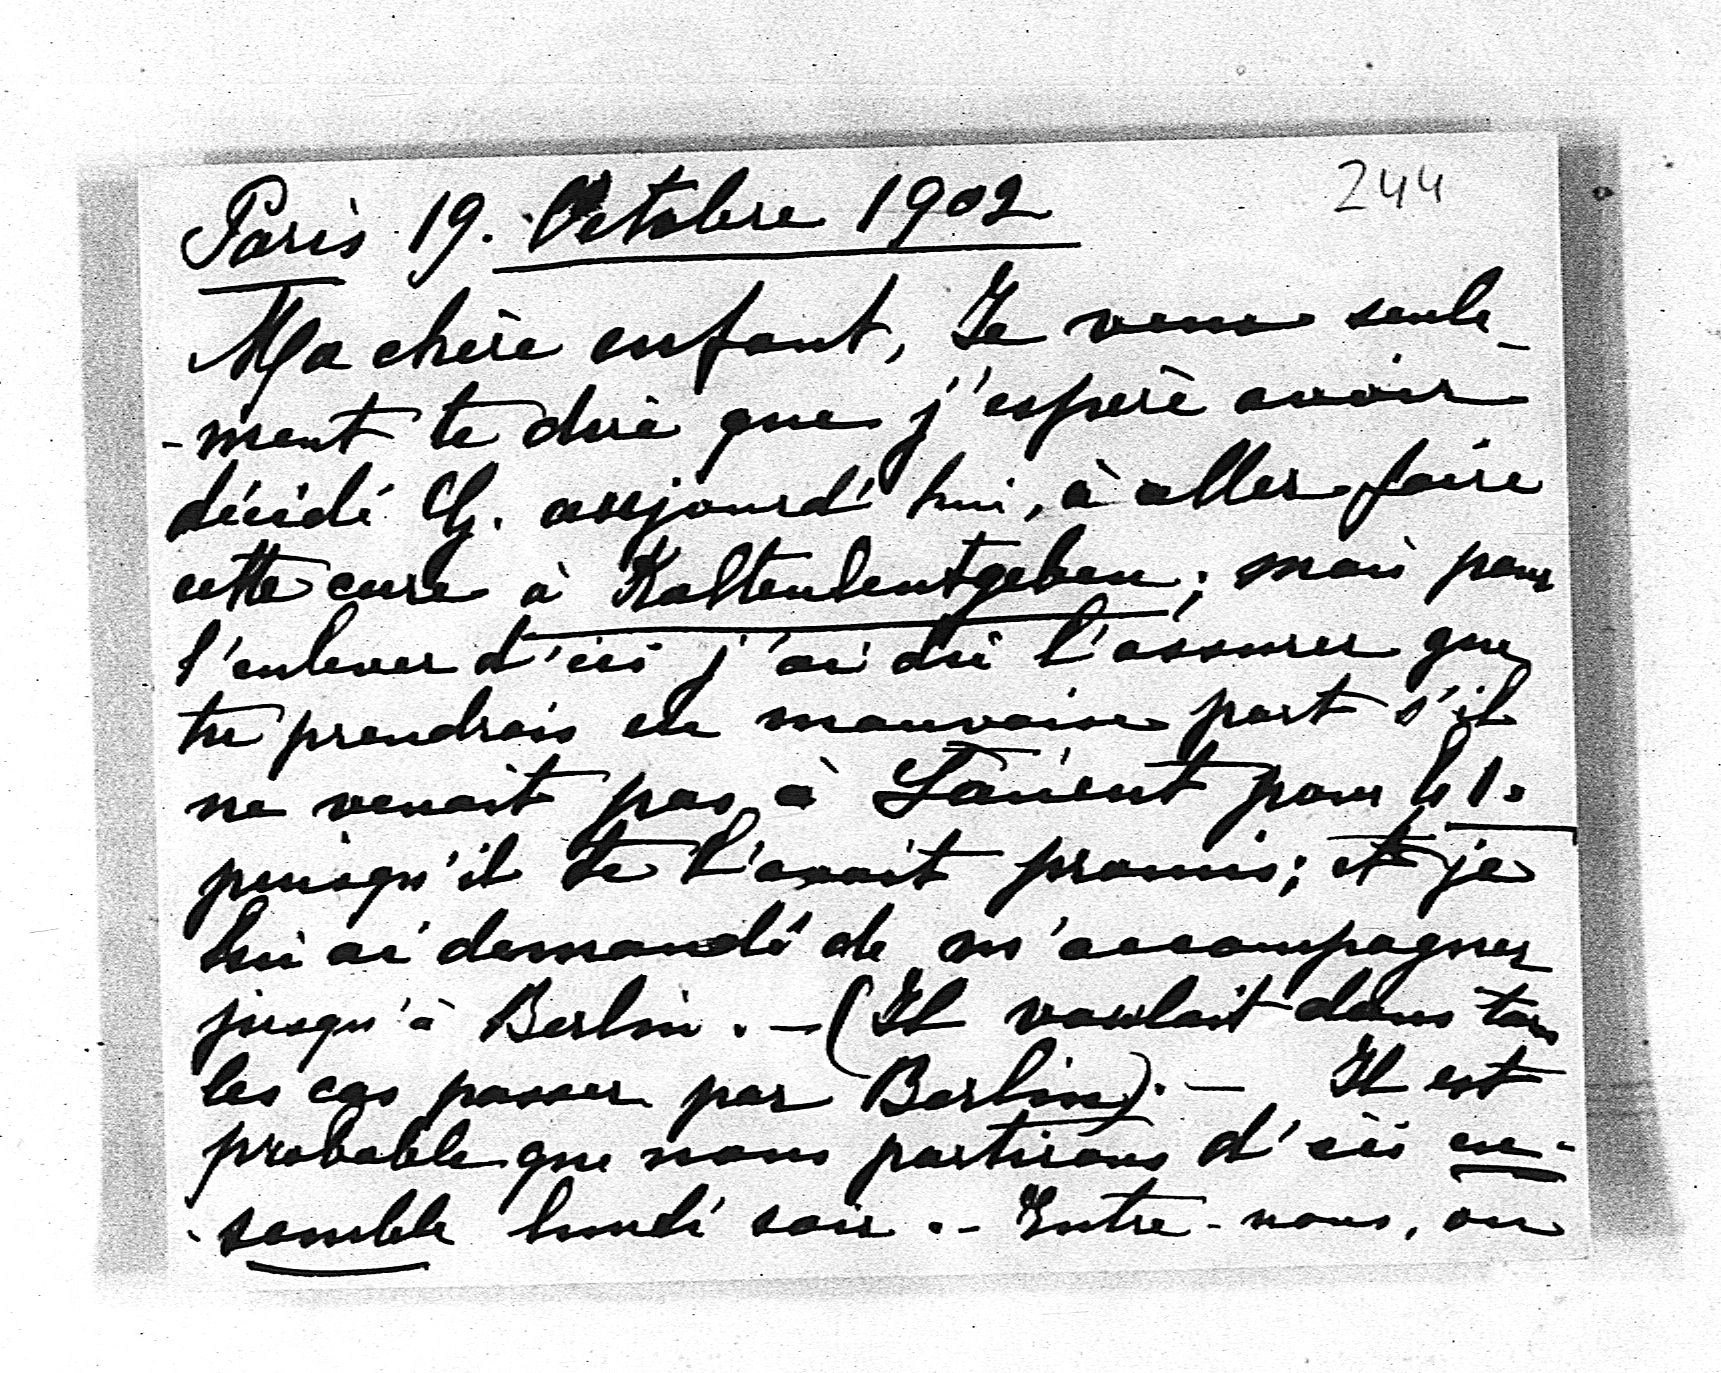 244
Paris 19. Octobre 1902
Ma chère enfant, Je veux seule-
-ment te dire que j'espère avoir
décidé G. aujourd'hui, à aller faire
cette cure à Kaltenleutgeben; mais pour
l'enlever d'ici j'ai dû l'assurer que
tu prendrais en mauvaise part s'il
ne venait pas à pour le 1.
puisqu'il te l'avait promis; et je
lui ai demandé de m'accompagner
jusqu'à Berlin. — (Il voulait dans tous
les cas passer par Berlin). — Il est
probable que nous partirons d'ici en-
-semble lundi soir. - Entre-nous, on